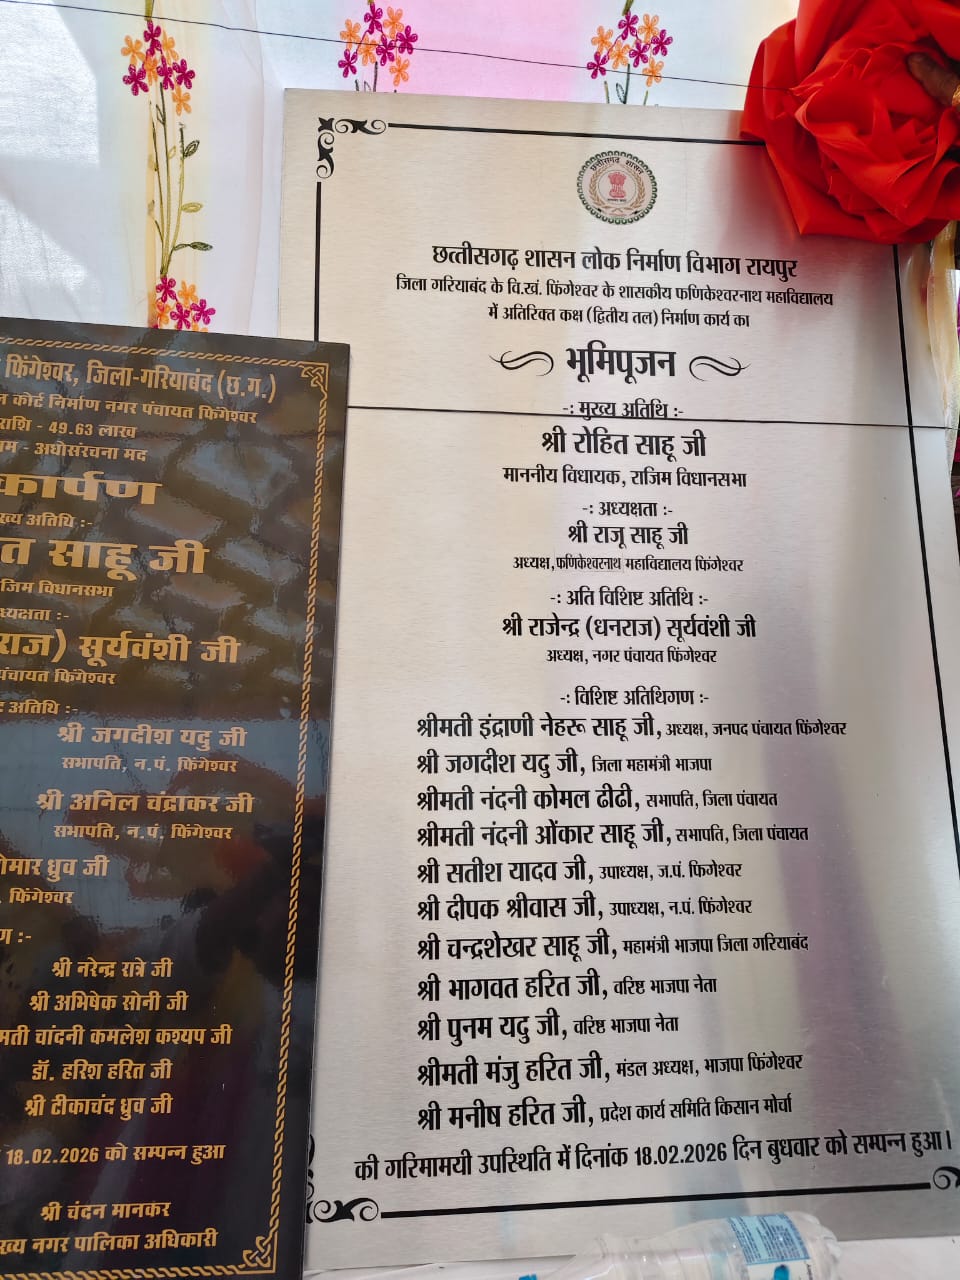 छत्तीसगढ़ शासन
छत्तीसगढ़ शासन लोक निर्माण विभाग रायपुर
जिला गरियाबंद के वि.खं. फिंगेश्वर के शासकीय फणिकेश्वरनाथ महाविद्यालय
में अतिरिक्त कक्ष (द्वितीय तल) निर्माण कार्य का
भूमिपूजन
-: मुख्य अतिथि :-
श्री रोहित साहू जी
माननीय विधायक, राजिम विधानसभा
-: अध्यक्षता :-
श्री राजू साहू जी
अध्यक्ष,फणिकेश्वरनाथ महाविद्यालय फिंगेश्वर
-: अति विशिष्ट अतिथि :-
श्री राजेन्द्र (धनराज) सूर्यवंशी जी
अध्यक्ष, नगर पंचायत फिंगेश्वर
-: विशिष्ट अतिथिगण :-
श्रीमती इंद्राणी नेहरू साहू जी, अध्यक्ष, जनपद पंचायत फिंगेश्वर
श्री जगदीश यदु जी, जिला महामंत्री भाजपा
श्रीमती नंदनी कोमल ढीढी, सभापति, जिला पंचायत
श्रीमती नंदनी ओंकार साहू जी, सभापति, जिला पंचायत
श्री सतीश यादव जी, उपाध्यक्ष, ज.पं. फिगेश्वर
श्री दीपक श्रीवास जी, उपाध्यक्ष, न.पं. फिंगेश्वर
श्री चन्द्रशेखर साहू जी, महामंत्री भाजपा जिला गरियाबंद
श्री भागवत हरित जी, वरिष्ठ भाजपा नेता
श्री पुनम यदु जी, वरिष्ठ भाजपा नेता
श्रीमती मंजु हरित जी, मंडल अध्यक्ष, भाजपा फिंगेश्वर
श्री मनीष हरित जी, प्रदेश कार्य समिति किसान मोर्चा
की गरिमामयी उपस्थिति में दिनांक 18.02.2026 दिन बुधवार को सम्पन्न हुआ।
फिंगेश्वर, जिला-गरियाबंद (छ.ग.)
कोर्ट निर्माण नगर पंचायत फिंगेश्वर
राशि - 49.63 लाख
- अधोसंरचना मद
कार्पण
अतिथि :-
साहू जी
विधानसभा
:-
सूर्यवंशी जी
पंचायत फिंगेश्वर
अतिथि :-
श्री जगदीश यदु जी
सभापति, न.पं. फिंगेश्वर
श्री अनिल चंद्राकर जी
सभापति, न.पं. फिंगेश्वर
ध्रुव जी
फिंगेश्वर
:-
श्री नरेन्द्र रात्रे जी
श्री अभिषेक सोनी जी
चांदनी कमलेश कश्यप जी
डॉ. हरिश हरित जी
श्री टीकाचंद ध्रुव जी
18.02.2026 को सम्पन्न हुआ
श्री चंदन मानकर
नगर पालिका अधिकारी